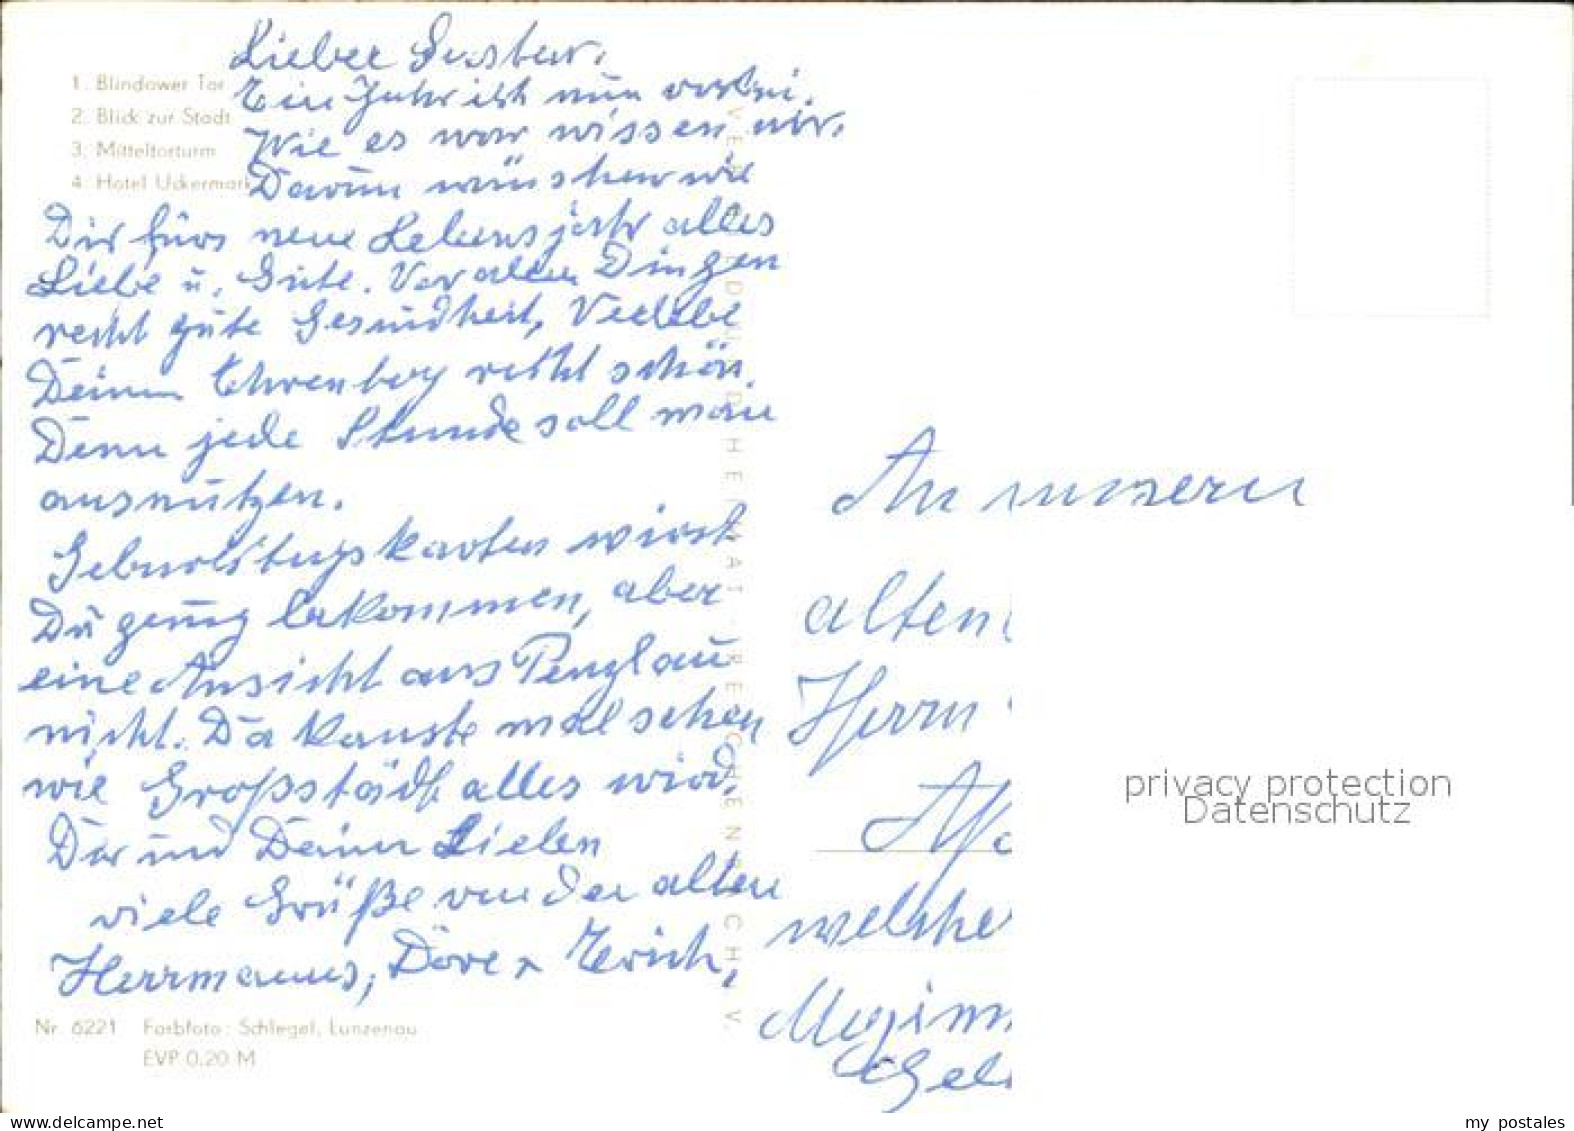 Lieber Gustav,
1. Blindower Tor
Ein Jahr ist nun vorbei.
2. Blick zur Stadt
Wie es war wissen wir.
3. Mitteltorturm
4. Hotel Uckermark
Darum wünschen wir
Dir fürs neue Lebensjahr alles
Liebe u. Gute. Vor allen Dingen
recht gute Gesundheit, Verlebe
Deinen Ehrentag recht schön.
Denn jede Stunde soll man
ausnutzen.
Geburtstagskarten wirst
Du genug bekommen, aber
eine Ansicht aus Prenzlau
nicht. Da kannste mal sehen
wie Großstädt alles wird.
Dir und Deinen Lieben
viele Grüße von den alten
Herrmanns, Dore Erich,
Nr. 6221 Farbfoto: Schlegel, Lunzenau
EVP 0,20 M
VERLAG BILD UND HEIMAT REICHENBACH V.
An unseren
alten
Herrn
welche
privacy protection
Datenschutz
www.delcampe.net
my postales